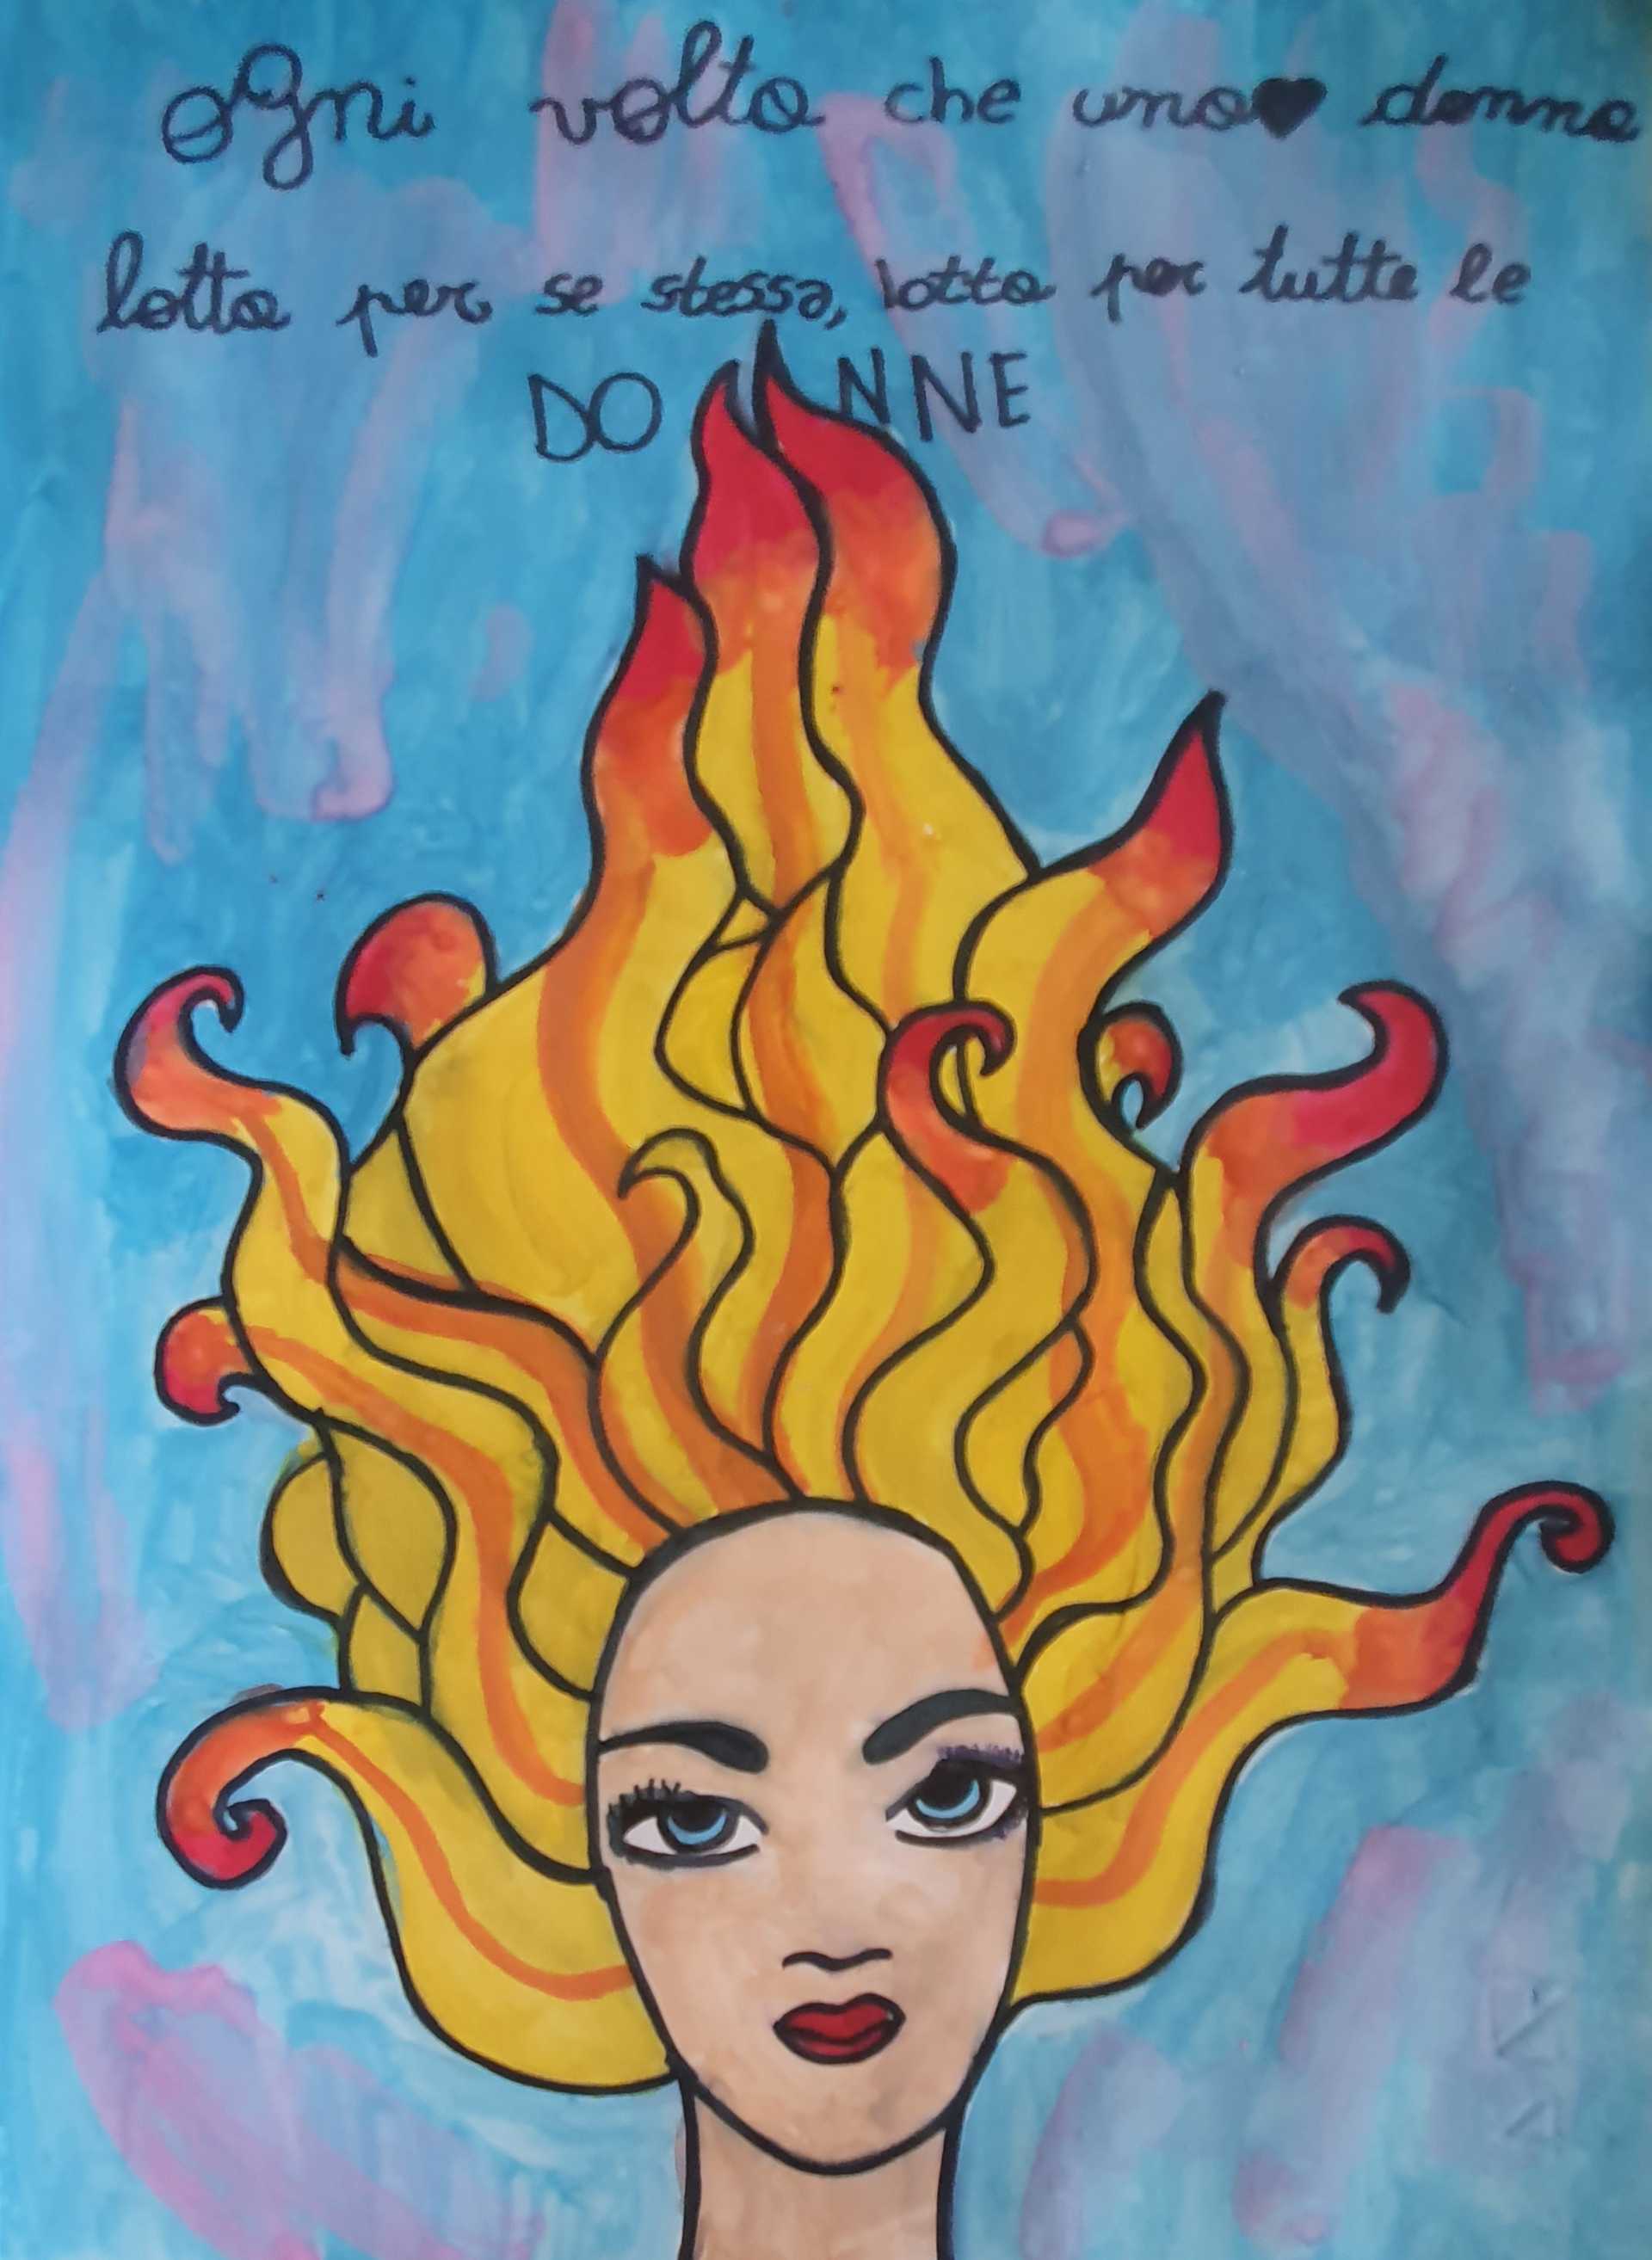 Ogni volta che una donna
lotta per se stessa, lotta per tutte le
DONNE